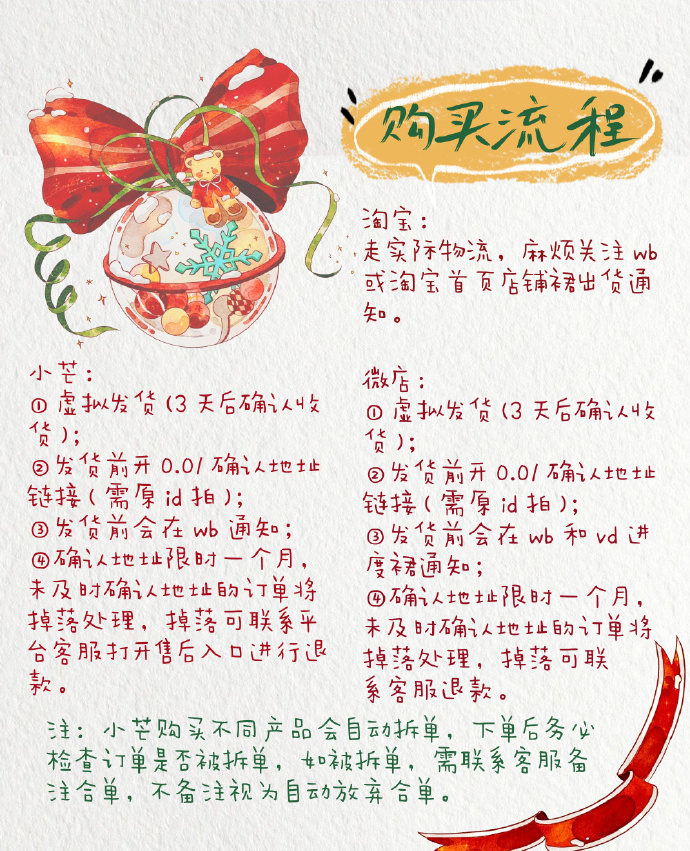 购买流程
淘宝：
走实际物流，麻烦关注 wb
或淘宝首页店铺裙出货通
知。
小芒：
① 虚拟发货（3 天后确认收
货）；
② 发货前开 0.01 确认地址
链接（需原 id 拍）；
③ 发货前会在 wb 通知；
④ 确认地址限时一个月，
未及时确认地址的订单将
掉落处理，掉落可联系平
台客服打开售后入口进行退
款。
微店：
① 虚拟发货（3 天后确认收
货）；
② 发货前开 0.01 确认地址
链接（需原 id 拍）；
③ 发货前会在 wb 和 vd 进
度裙通知；
④ 确认地址限时一个月，
未及时确认地址的订单将
掉落处理，掉落可联
系客服退款。
注：小芒购买不同产品会自动拆单，下单后务必
检查订单是否被拆单，如被拆单，需联系客服备
注合单，不备注视为自动放弃合单。